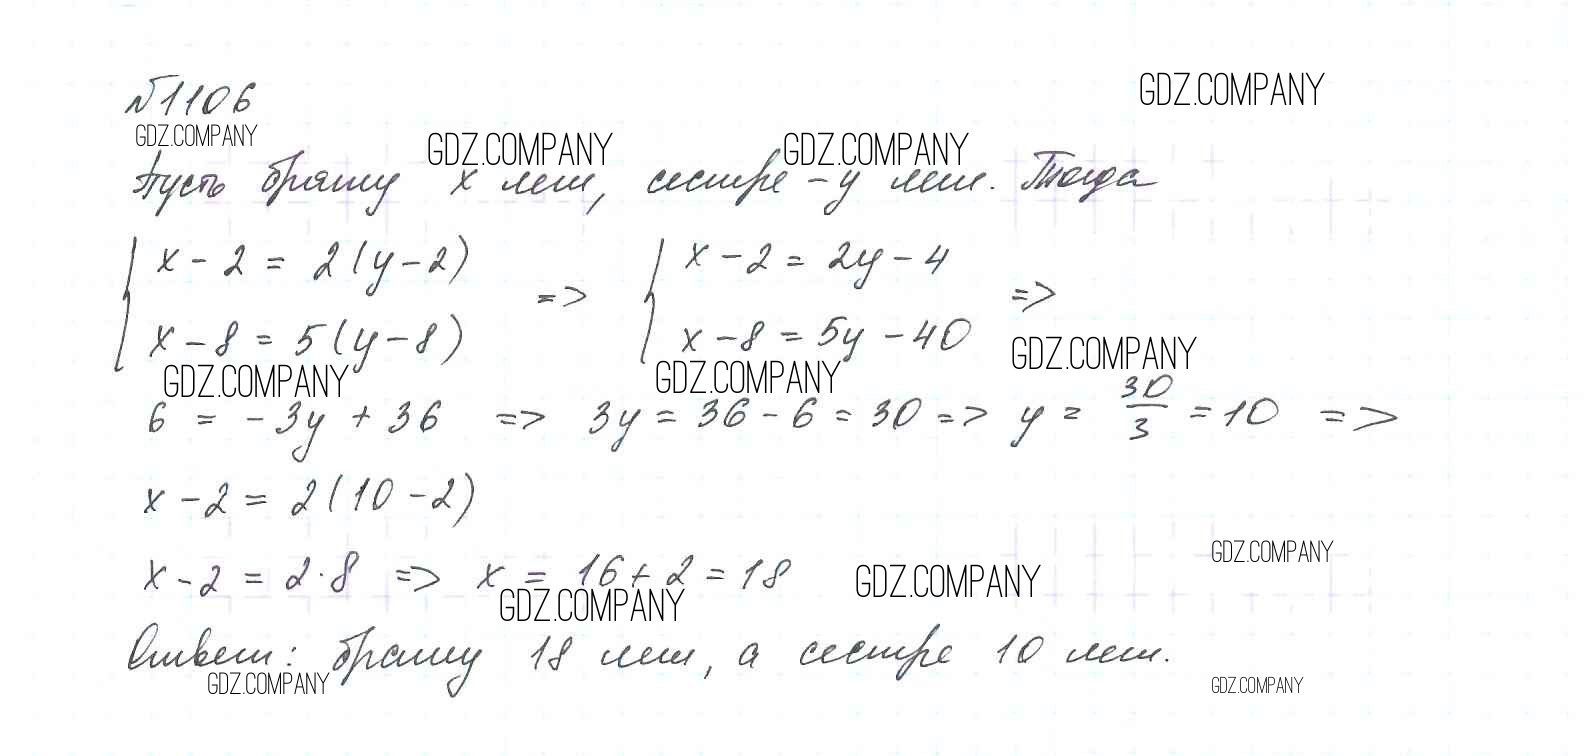 №1106
GDZ.COMPANY
GDZ.COMPANY
GDZ.COMPANY
GDZ.COMPANY
Пусть брату x лет, сестре – y лет. Тогда
{ x - 2 = 2(y - 2) => { x - 2 = 2y - 4 =>
x - 8 = 5(y - 8) x - 8 = 5y - 40
GDZ.COMPANY
GDZ.COMPANY
GDZ.COMPANY
6 = -3y + 36 => 3y = 36 - 6 = 30 => y = 30/3 = 10 =>
x - 2 = 2(10 - 2)
GDZ.COMPANY
x - 2 = 2·8 => x = 16 + 2 = 18
GDZ.COMPANY
GDZ.COMPANY
Ответ: брату 18 лет, а сестре 10 лет.
GDZ.COMPANY
GDZ.COMPANY